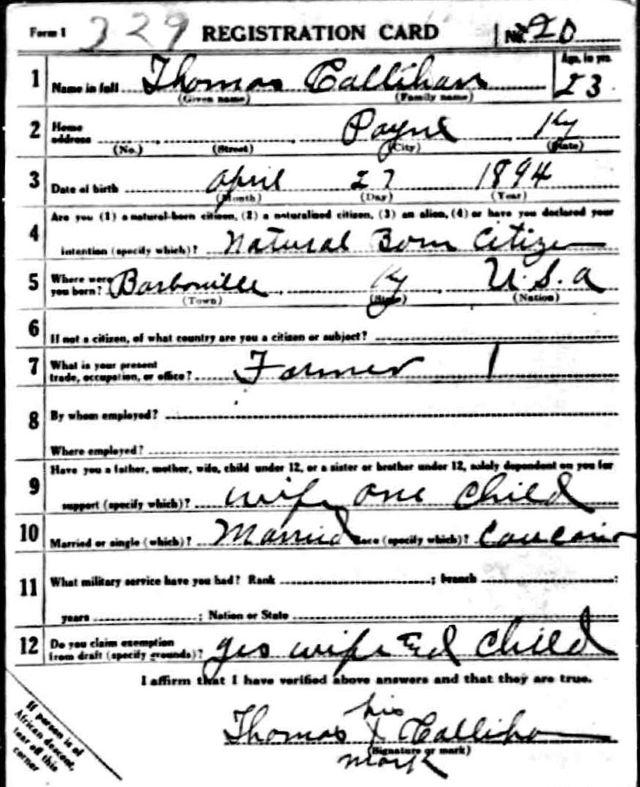 Form 1 329 REGISTRATION CARD No. 20
1 Name in full Thomas Callihan Age, in yrs. 23
(Given name) (Family name)
2 Home address Payne Ky
(No.) (Street) (City) (State)
3 Date of birth April 27 1894
(Month) (Day) (Year)
4 Are you (1) a natural-born citizen, (2) a naturalized citizen, (3) an alien, (4) or have you declared your
intention (specify which)? Natural Born Citizen
5 Where were you born? Barbourville Ky U.S.a
(Town) (State) (Nation)
6 If not a citizen, of what country are you a citizen or subject?
7 What is your present trade, occupation, or office? Farmer 1
8 By whom employed?
Where employed?
9 Have you a father, mother, wife, child under 12, or a sister or brother under 12, solely dependent on you for
support (specify which)? wife one child
10 Married or single (which)? Married Race (specify which)?
11 What military service have you had? Rank ; branch ;
years ; Nation or State
12 Do you claim exemption from draft (specify grounds)? yes wife child
I affirm that I have verified above answers and that they are true.
his
Thomas X Calliha
(Signature or mark)
mark
If person is of
African descent,
tear off this
corner